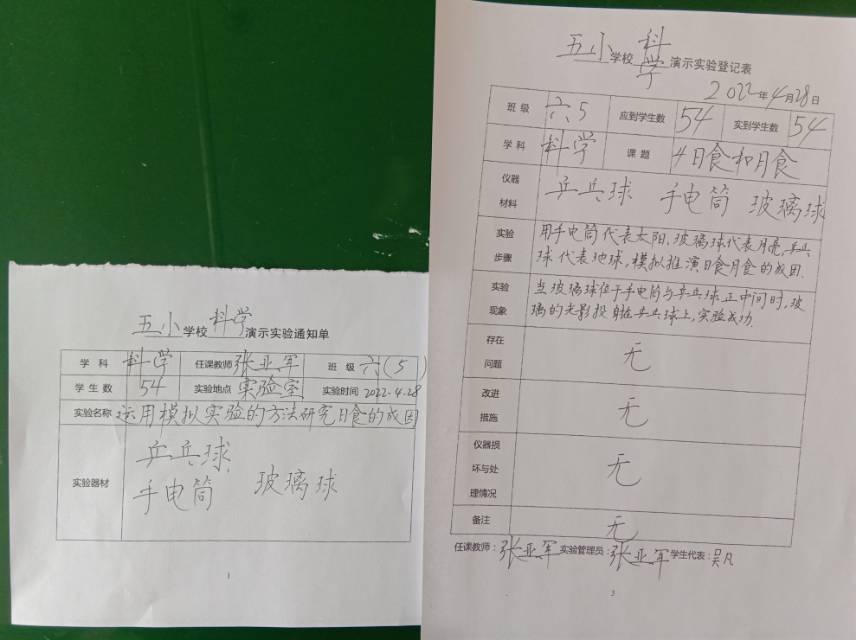 五小学校科学演示实验通知单
学科 科学 任课教师 张亚军 班级 六(5)
学生数 54 实验地点 实验室 实验时间 2022.4.28
实验名称 运用模拟实验的方法研究日食的成因
实验器材 乒乓球
手电筒 玻璃球
1
五小学校科学演示实验登记表
2022年4月28日
班级 六5 应到学生数 54 实到学生数 54
学科 科学 课题 4日食和月食
仪器材料 乒乓球 手电筒 玻璃球
实验步骤 用手电筒代表太阳,玻璃球代表月亮,乒乓
球代表地球,模拟推演日食月食的成因.
实验现象 当玻璃球位于手电筒与乒乓球正中间时,玻
璃的光影投射在乒乓球上,实验成功.
存在问题 无
改进措施 无
仪器损坏与处理情况 无
备注 无
任课教师:张亚军 实验管理员:张亚军 学生代表:吴凡
3